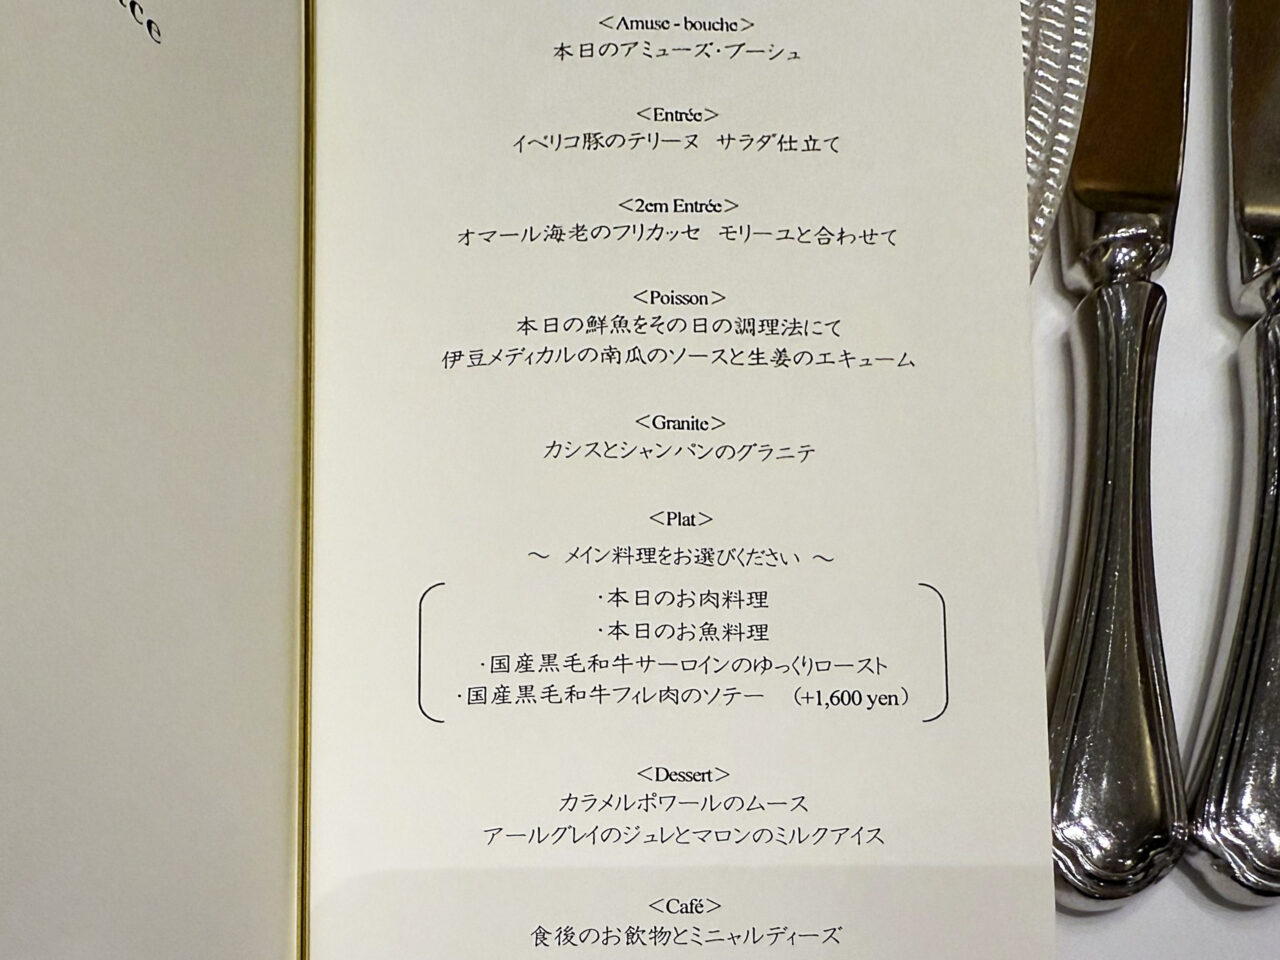 <Amuse - bouche>
本日のアミューズ・ブーシュ
<Entrée>
イベリコ豚のテリーヌ サラダ仕立て
<2em Entrée>
オマール海老のフリカッセ モリーユと合わせて
<Poisson>
本日の鮮魚をその日の調理法にて
伊豆メディカルの南瓜のソースと生姜のエキューム
<Granite>
カシスとシャンパンのグラニテ
<Plat>
～ メイン料理をお選びください ～
・本日のお肉料理
・本日のお魚料理
・国産黒毛和牛サーロインのゆっくりロースト
・国産黒毛和牛フィレ肉のソテー (+1,600 yen)
<Dessert>
カラメルポワールのムース
アールグレイのジュレとマロンのミルクアイス
<Café>
食後のお飲物とミニャルディーズ